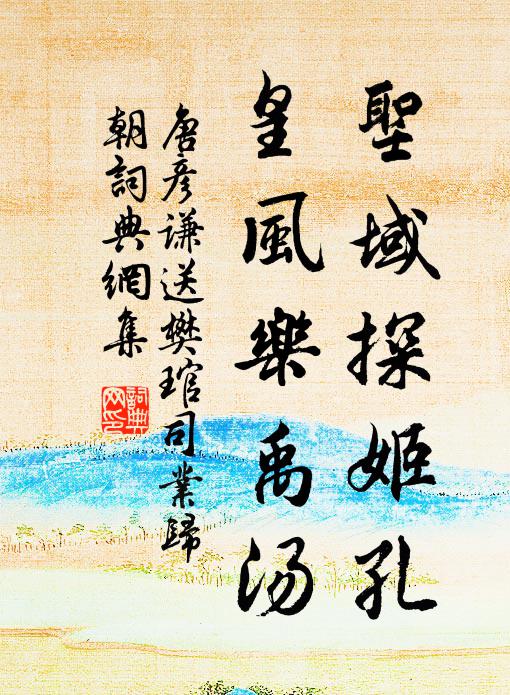 聖域探姬孔
皇風樂禹湯
唐彥謙送樊琯司業歸
朝詞典網集
詞典网印